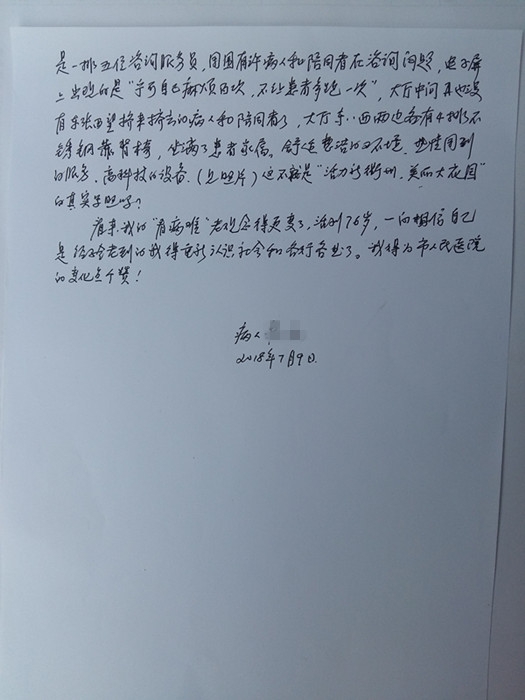 是一排五位咨询服务员，周围有许病人和陪同者在咨询问题，电子屏
上出现的是“宁可自己麻烦百次，不让患者多跑一次”，大厅中间再也没
有东张西望挤来挤去的病人和陪同者了，大厅东、西两边各有4排不
锈钢靠背椅，坐满了患者家属。舒适整洁的环境、热情周到
的服务、高科技的设备.(见照片)这不就是“活力新衢州，美丽大花园”
的真实写照吗？
看来我的“看病难”老观念得更变了，活到76岁，一向相信自己
是
的我得重新认识社会和各行各业了。我得为市人民医院
的变化点个赞！
病人
2018年7月9日.